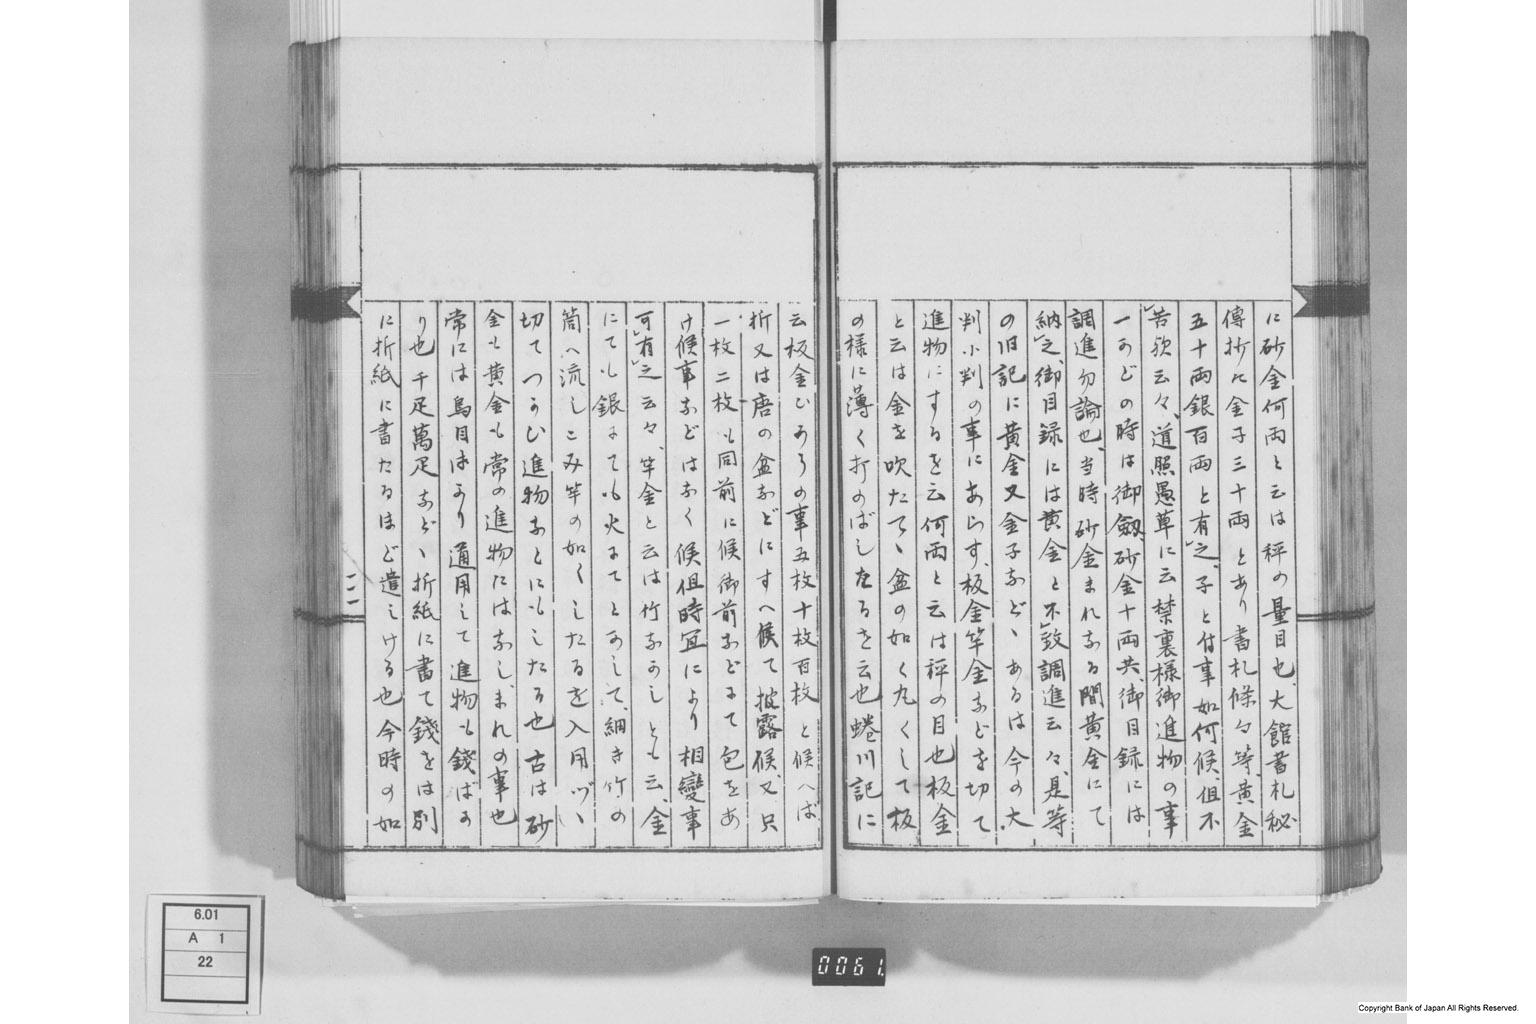 に砂金何両と云は秤の量目也、大館書札秘
傳抄に金子三十両とあり書札條々等、黄金
五十両銀百両と有之、子と付事如何候、但不
苦歟云々、道照愚草に云禁裏様御進物の事
一 の時は御劔砂金十両共、御目録には
調進勿論也、当時砂金まれなる間黄金にて
納之、御目録には黄金と不致調進云々、是等
の旧記に黄金又金子など、あるは今の大
判小判の事にあらす、板金竿金などを切て
進物にするを云何両と云は秤の目也板金
と云は金を吹たて、盆の如く丸くして板
の様に薄く打のばしたるを云也蜷川記に
云板金 の事五枚十枚百枚と候へば
折又は唐の盆などにすへ候て披露候、又只
一枚二枚も同前に候御前などにて包をあ
け候事などはなく候但時宜により相變事
可有之云々、竿金と云は竹ながしとも云、金
にても銀にても火にてとかして、細き竹の
筒へ流しこみ竿の如くしたるを入用 ゝ
切てつかひ進物なとにもしたる也古は砂
金も黄金も常の進物にはなし、まれの事也
常には鳥目ばかり通用して進物も錢ばか
り也千疋萬疋など、折紙に書て錢をは別
に折紙に書たるほど遣しける也今時の如
二二
6.01
A 1
22
0061.
Copyright Bank of Japan All Rights Reserved.